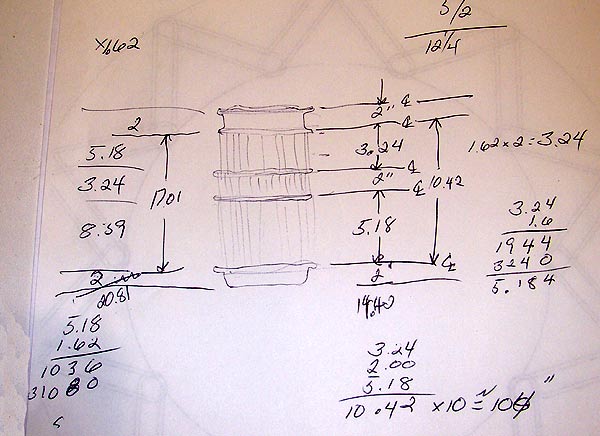 5/2
12/4
x/662
2
5.18
3.24
8.59
1701
2
20.81
2" ⅊
℄
3.24
2" ℄
10.42
5.18
℄
2"
14.42
1.62 x 2 = 3.24
3.24
1.6
1944
3240
5.184
5.18
1.62
1036
31080
3.24
2.00
5.18
10.42 x 10 ≅ 104"